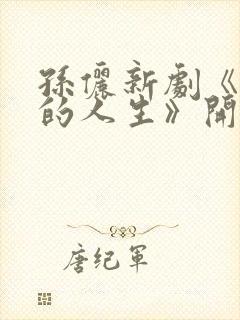 孫儷新劇《
的人生》開
唐纪军